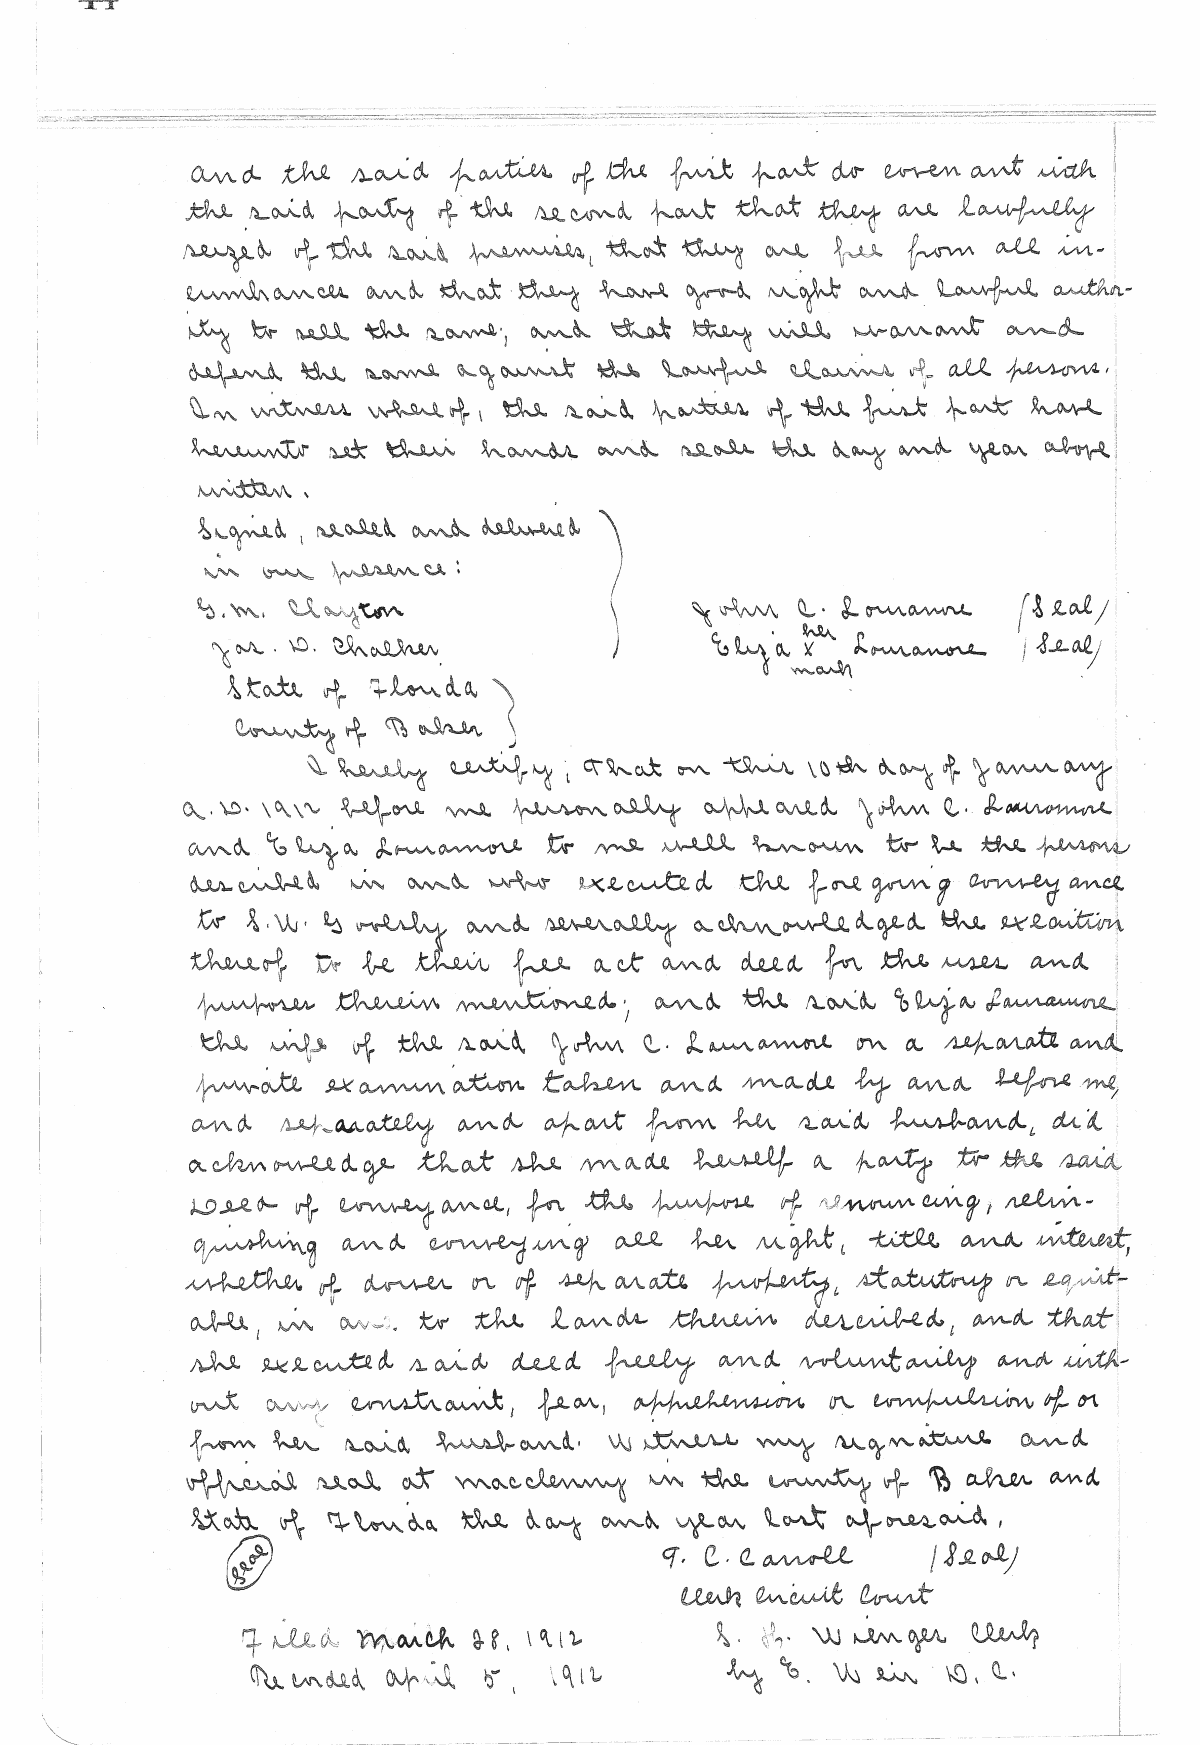 and the said parties of the first part do covenant with
the said party of the second part that they are lawfully
seized of the said premises, that they are free from all in-
cumbrances and that they have good right and lawful author-
ity to sell the same; and that they will warrant and
defend the same against the lawful claims of all persons.
In witness whereof, the said parties of the first part have
hereunto set their hands and seals the day and year above
written.
Signed, sealed and delivered
in our presence:
G. M. Clayton
John C. Louramore (Seal)
her
Jas. D. Chalker
Eliza x Louramore (Seal)
mark
State of Florida
County of Baker
I hereby certify, That on this 10th day of January
A. D. 1912 before me personally appeared John C. Louramore
and Eliza Louramore to me well known to be the persons
described in and who executed the foregoing conveyance
to S. W. and severally acknowledged the execution
thereof to be their free act and deed for the uses and
purposes therein mentioned; and the said Eliza Lauramore
the wife of the said John C. Lauramore on a separate and
private examination taken and made by and before me,
and separately and apart from her said husband, did
acknowledge that she made herself a party to the said
Deed of conveyance, for the purpose of renouncing, relin-
quishing and conveying all her right, title and interest,
whether of dower or of separate property, statutory or equit-
able, in and to the lands therein described, and that
she executed said deed freely and voluntarily and with-
out any constraint, fear, apprehension or compulsion of or
from her said husband. Witness my signature and
official seal at Macclenny in the county of Baker and
State of Florida the day and year last aforesaid.
Seal
T. C. Carroll (Seal)
Clerk Circuit Court
Filed March 28, 1912
S. H. Wienger Clerk
Recorded April 5, 1912
by E. Weir D. C.